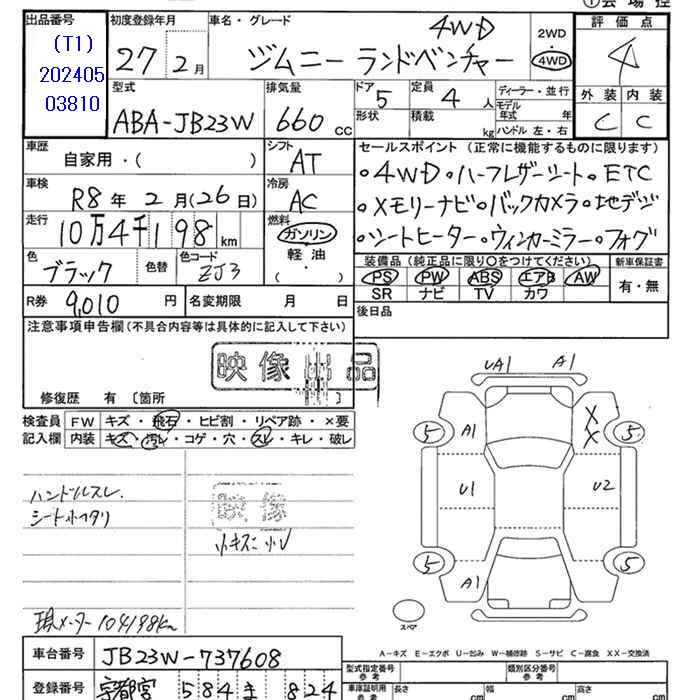 ①会場控
出品番号 初度登録年月 車名・グレード 評価点
(T1) 27 2月 ジムニー ランドベンチャー 4WD 2WD 4
202405 4WD
03810 型式 排気量 ドア 定員 ディーラー・並行 外装 内装
ABA-JB23W 660cc 5 4人 モデル年式 年 C C
形状 積載 kg ハンドル 左・右
車歴 シフト セールスポイント (正常に機能するものに限ります)
自家用・( ) AT ・4WD ・ハーフレザーシート ・ETC
車検 冷房 ・メモリーナビ ・バックカメラ ・地デジ
R8年 2月(26日) AC ・シートヒーター ・ウィンカーミラー ・フォグ
走行 燃料 装備品 (純正品に限り〇をつけてください) 新車保証書
10万4千198km ガソリン PS PW ABS エアB AW 有・無
色 色替 色コード 軽油 SR ナビ TV カワ
ブラック ZJ3 ・( )
R券 9,010円 名変期限 月 日 後日品
注意事項申告欄(不具合内容等は具体的に記入して下さい)
映像 品
修復歴 有 〔箇所 〕
検査員 FW キズ・飛石・ヒビ割・リペア跡・×要
記入欄 内装 キズ・汚れ・コゲ・穴・スレ・キレ・破レ
ハンドルスレ
シートヘタリ
映像
小キズ 小U
現メーター104198km
UA1 A1
5 A1 X X 5
U1 U2
5 A1 5
スペア
A-キズ E-エクボ U-凹み W-補修跡 S-サビ C-腐食 XX-交換済
車台番号 JB23W-737608 型式指定番号 参考 類別区分番号 参考
登録番号 宇都宮 584 ま 824 車庫証明用 参考 長さ cm 幅 cm 高さ cm